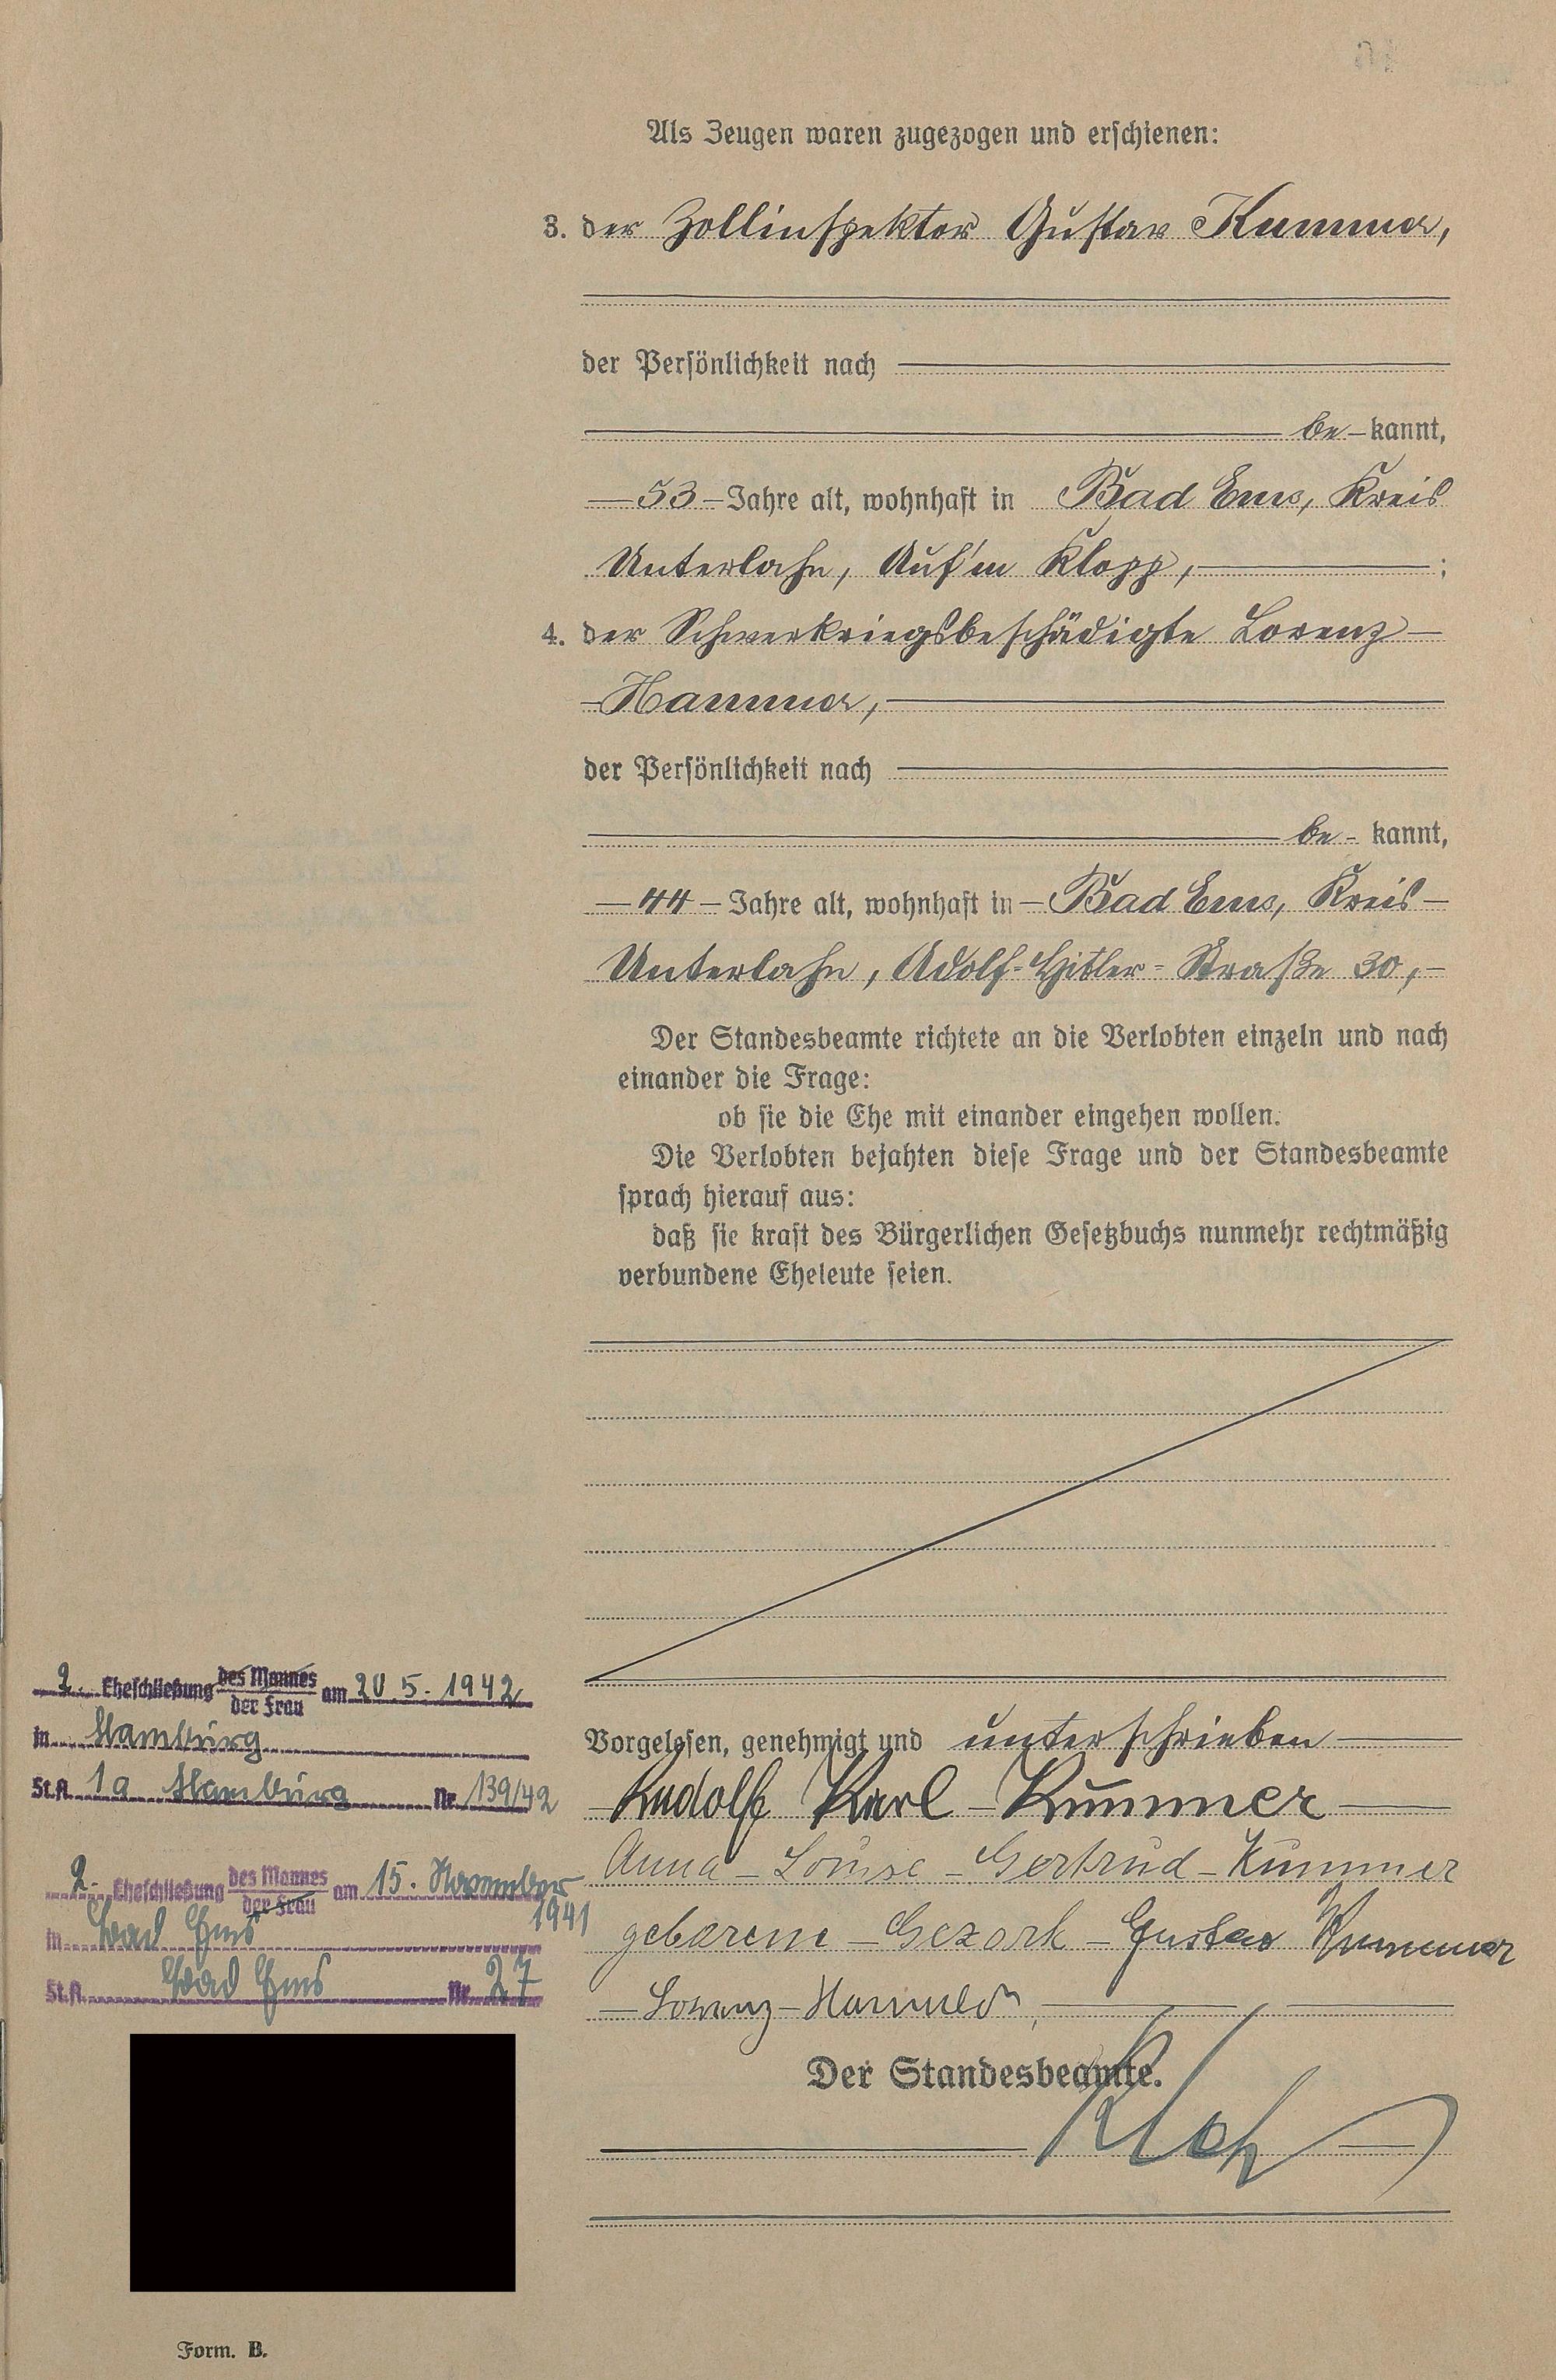 Als Zeugen waren zugezogen und erschienen:
3. der Zollinspektor Gustav Kummer,
der Persönlichkeit nach
be-kannt,
53-Jahre alt, wohnhaft in Bad Ems, Kreis
Unterlahn, Auf'm Klopp, ;
4. der Schwerkriegsbeschädigte Lorenz
Hammer,
der Persönlichkeit nach
be- kannt,
44-Jahre alt, wohnhaft in Bad Ems, Kreis
Unterlahn, Adolf-Hitler-Straße 30,
Der Standesbeamte richtete an die Verlobten einzeln und nach
einander die Frage:
ob sie die Ehe mit einander eingehen wollen.
Die Verlobten bejahten diese Frage und der Standesbeamte
sprach hierauf aus:
daß sie kraft des Bürgerlichen Gesetzbuchs nunmehr rechtmäßig
verbundene Eheleute seien.
Vorgelesen, genehmigt und unterschrieben
Rudolf Karl Kummer
Anna-Louise-Gertrud-Kummer
geborene Gezork Gustav Kummer
Lorenz-Hammer,
Der Standesbeamte.
2. Eheschließung des Mannes am 20 5. 1942
der Frau
in Hamburg
St.A. 1a Hamburg Nr. 139/42
2. Eheschließung des Mannes am 15. November
der Frau
1941
in Bad Ems
St.A. Bad Ems Nr. 27
Form. B.